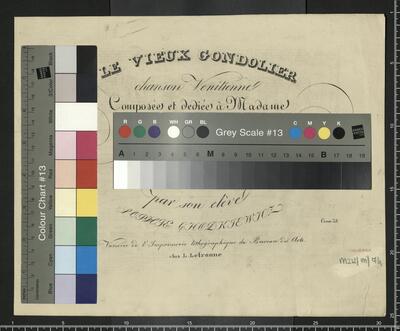 LE VIEUX GONDOLIER
chanson Vénitienne
Composée et dediée à Madame
R G B WH GR BL
Grey Scale #13
C M Y K
A 1 2 3 4 5 6 M 8 9 10 11 12 13 14 15 B 17 18 19
par son elève
Varsovie de l'Imprimerie lithographique du Bureau des Arts.
chez L. Letronne
Colour Chart #13
Blue
Cyan
Green
Yellow
Red
Magenta
White
3/Color
Black